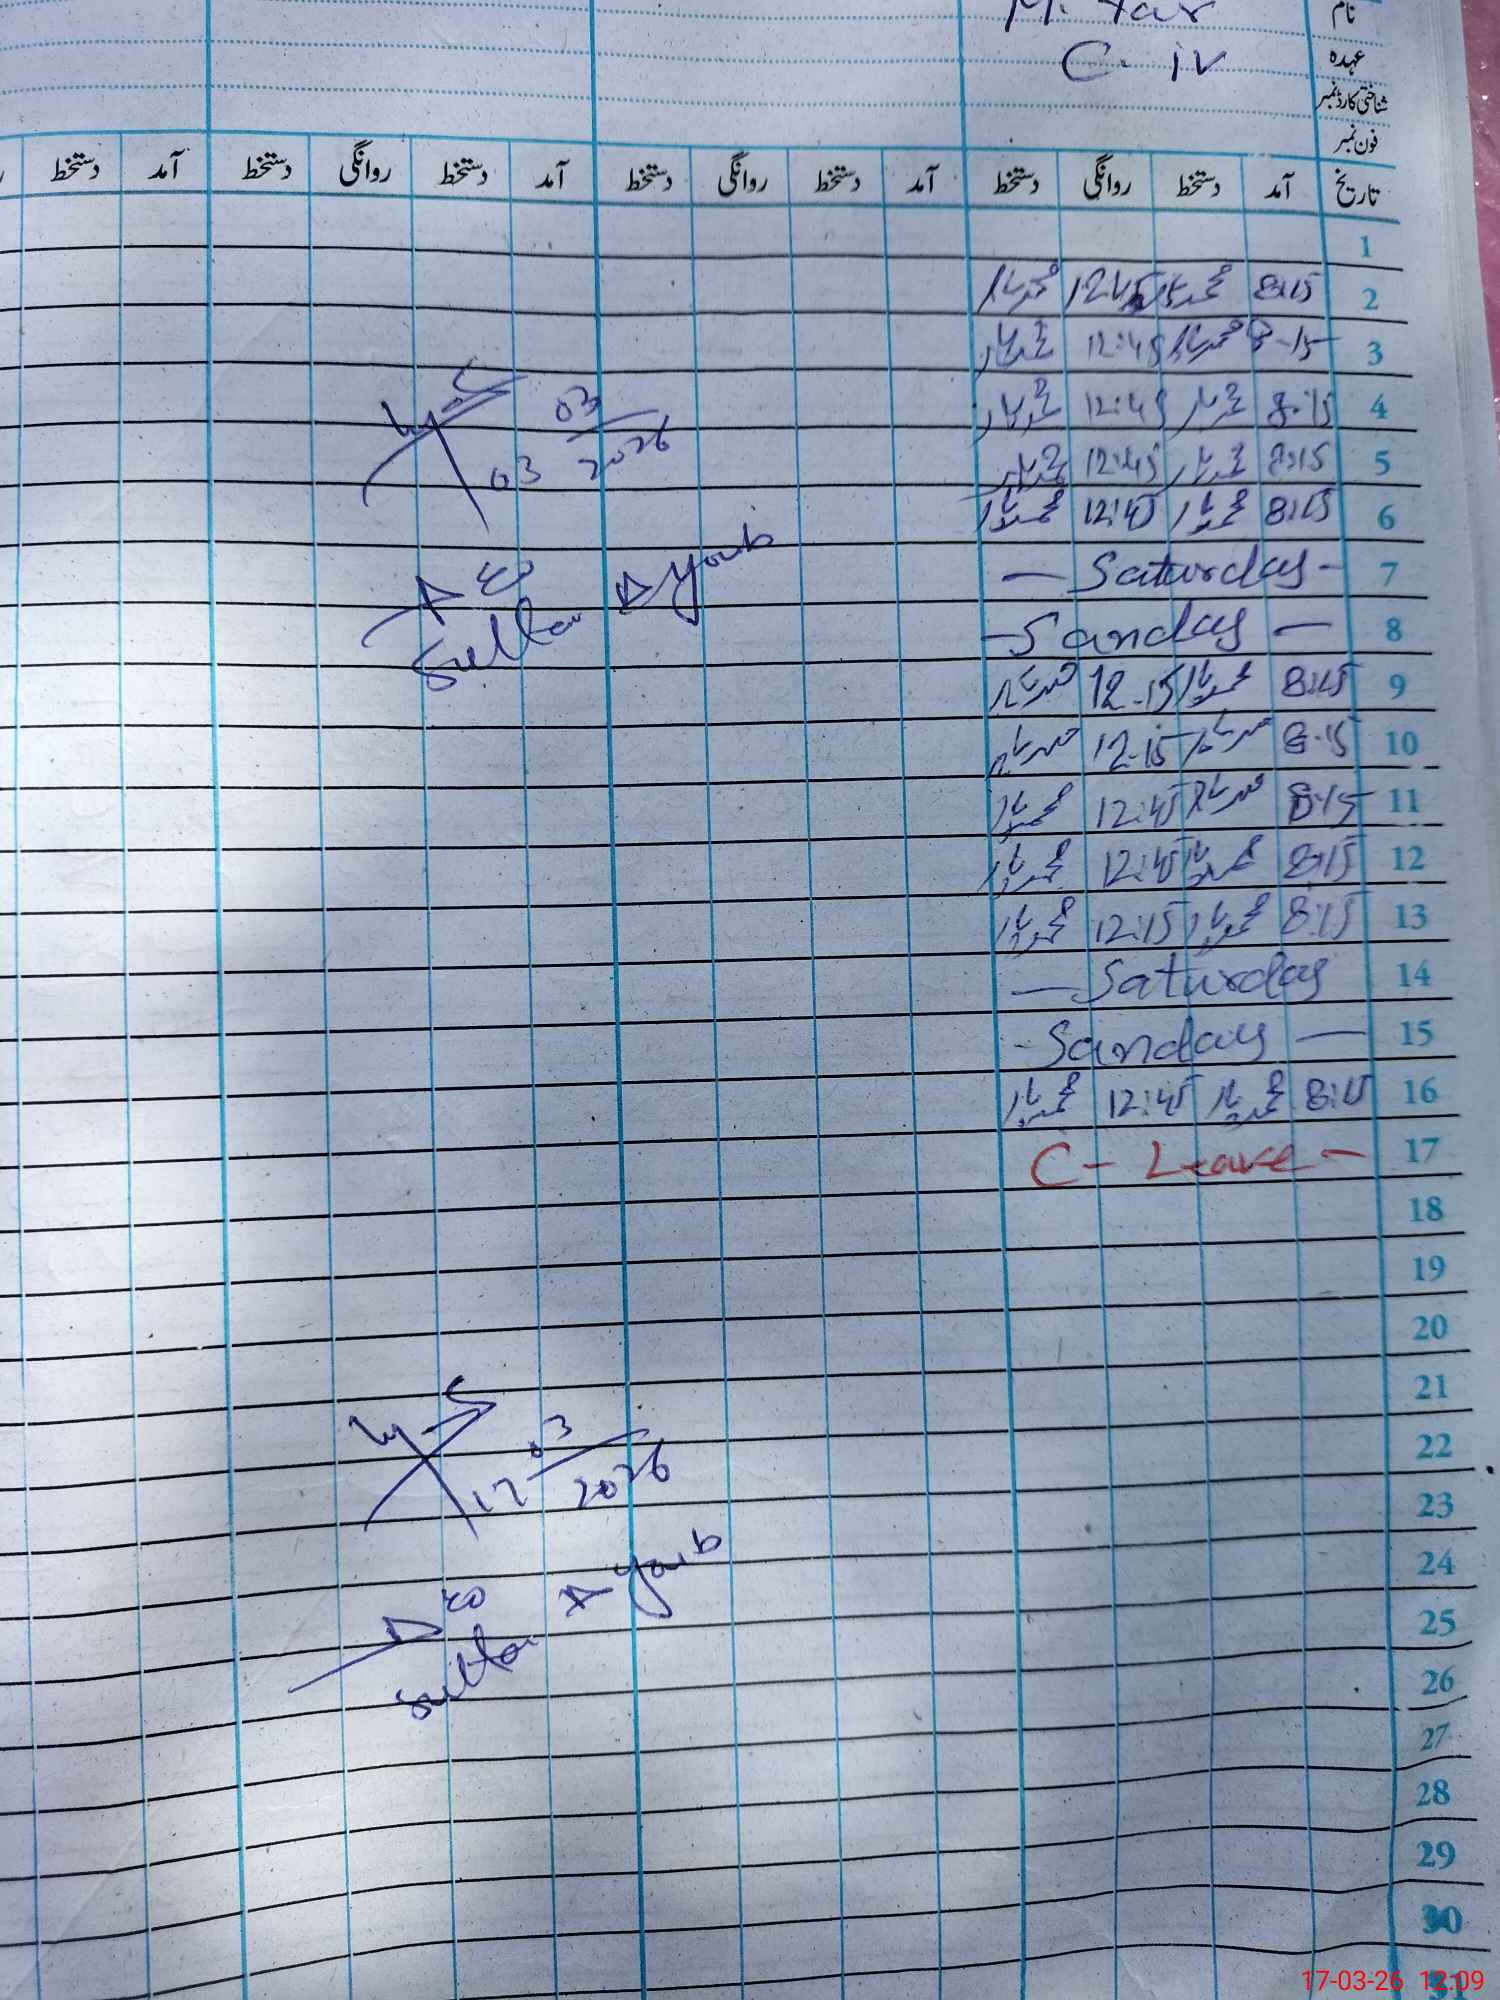 نام M. Yar
عہدہ C. iv
شناختی کارڈ نمبر
فون نمبر
تاریخ آمد دستخط روانگی دستخط آمد دستخط روانگی دستخط آمد دستخط روانگی دستخط آمد دستخط
1
2 8:15 محمد یار 12:45 محمد یار
3 8-15 محمد یار 12:45 محمد یار
4 8:15 محمد یار 12:45 محمد یار
5 8:15 محمد یار 12:45 محمد یار
6 8:15 محمد یار 12:45 محمد یار
7 — Saturday -
8 - Sanday —
9 8:15 محمد یار 12-15 محمد یار
10 8-15 محمد یار 12-15 محمد یار
11 8:15 محمد یار 12:45 محمد یار
12 8:15 محمد یار 12:45 محمد یار
13 8:15 محمد یار 12:15 محمد یار
14 — Saturday
15 - Sanday —
16 8:15 محمد یار 12:45 محمد یار
17 C - Leave -
18
19
20
21
22
23
24
25
26
27
28
29
30
31
03 03 2026
Sultan Ayoub
17 03 2026
Sultan Ayoub
17-03-26 12:09